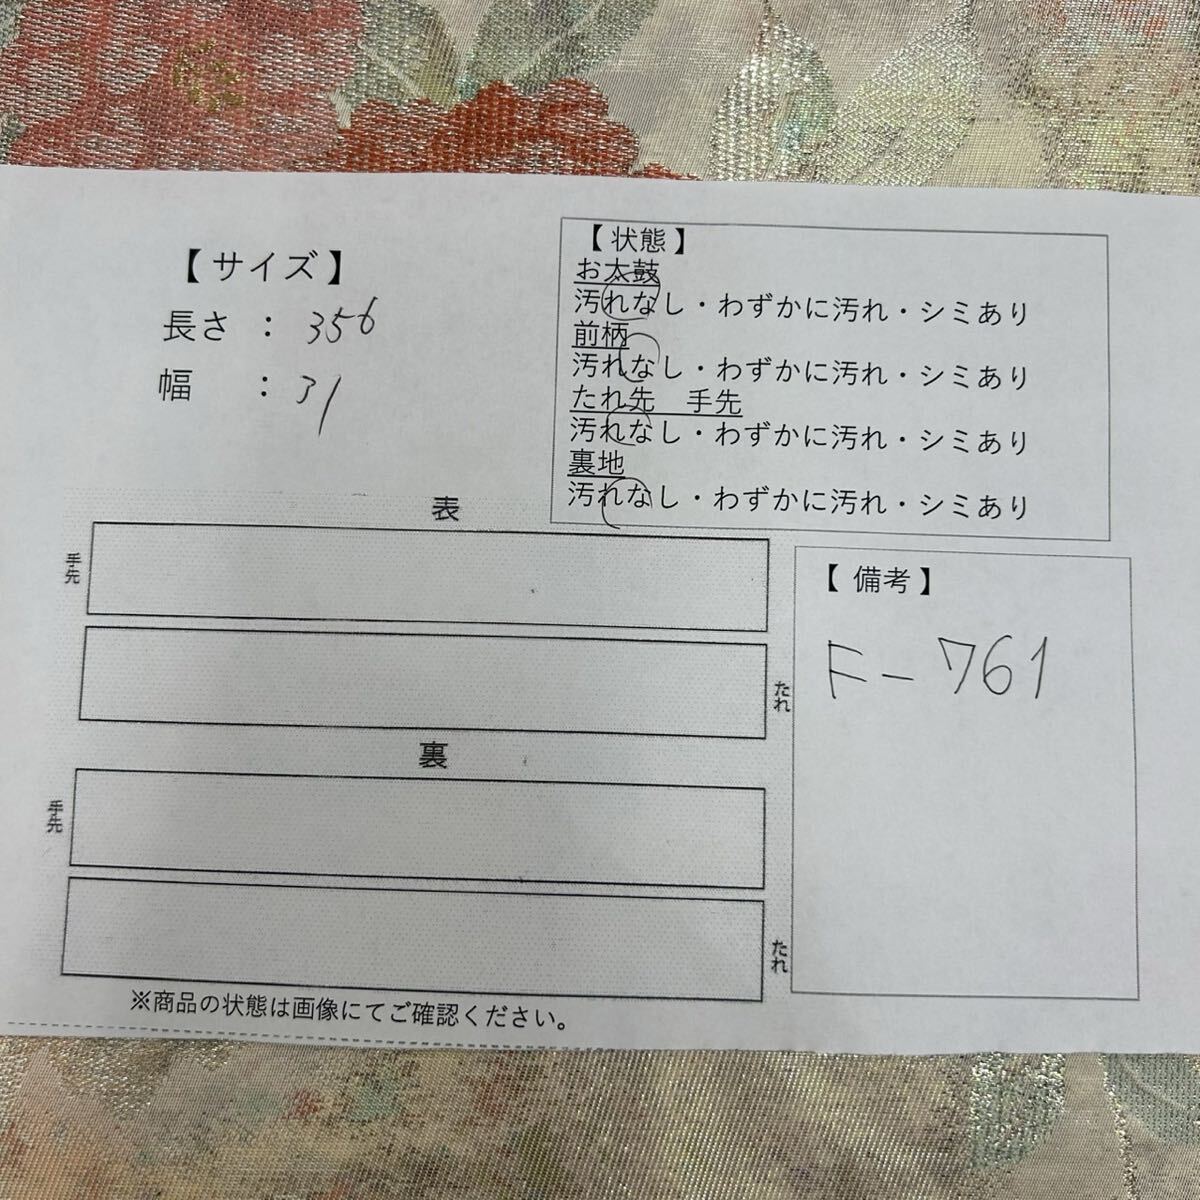 【サイズ】
長さ ： 356
幅 ： 31
【状態】
お太鼓
汚れなし・わずかに汚れ・シミあり
前柄
汚れなし・わずかに汚れ・シミあり
たれ先　手先
汚れなし・わずかに汚れ・シミあり
裏地
汚れなし・わずかに汚れ・シミあり
表
手先
たれ
裏
手先
たれ
※商品の状態は画像にてご確認ください。
【備考】
F-761